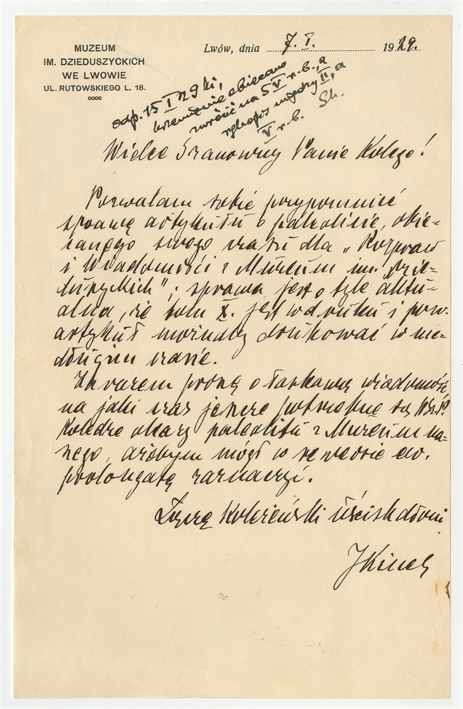 MUZEUM
IM. DZIEDUSZYCKICH
WE LWOWIE
UL. RUTOWSKIEGO L. 18.
Lwów, dnia 7. I. 1929.
odp. 15 I 29
krzemienie obiecano
zwrócić na 5 V r. b., a
między II, a
V r. b.
Wielce Szanowny Panie Kolego!
Pozwalam sobie przypomnieć
sprawę artykułu o paleolicie, obie-
canego swego czasu dla „Rozpraw
i Wiadomości z Muzeum im. Dzie-
duszyckich"; sprawa jest o tyle aktu-
alna, że tom X. jest w druku i
artykuł możnaby drukować w nie-
długim czasie.
Zarazem proszę o łaskawą wiadomość
na jaki czas jeszcze potrzebne są
Koledze okazy paleolitu z Muzeum na-
szego, ażebym mógł w rewersie ew.
prolongatę zaznaczyć.
Łączę Koleżeński uścisk dłoni